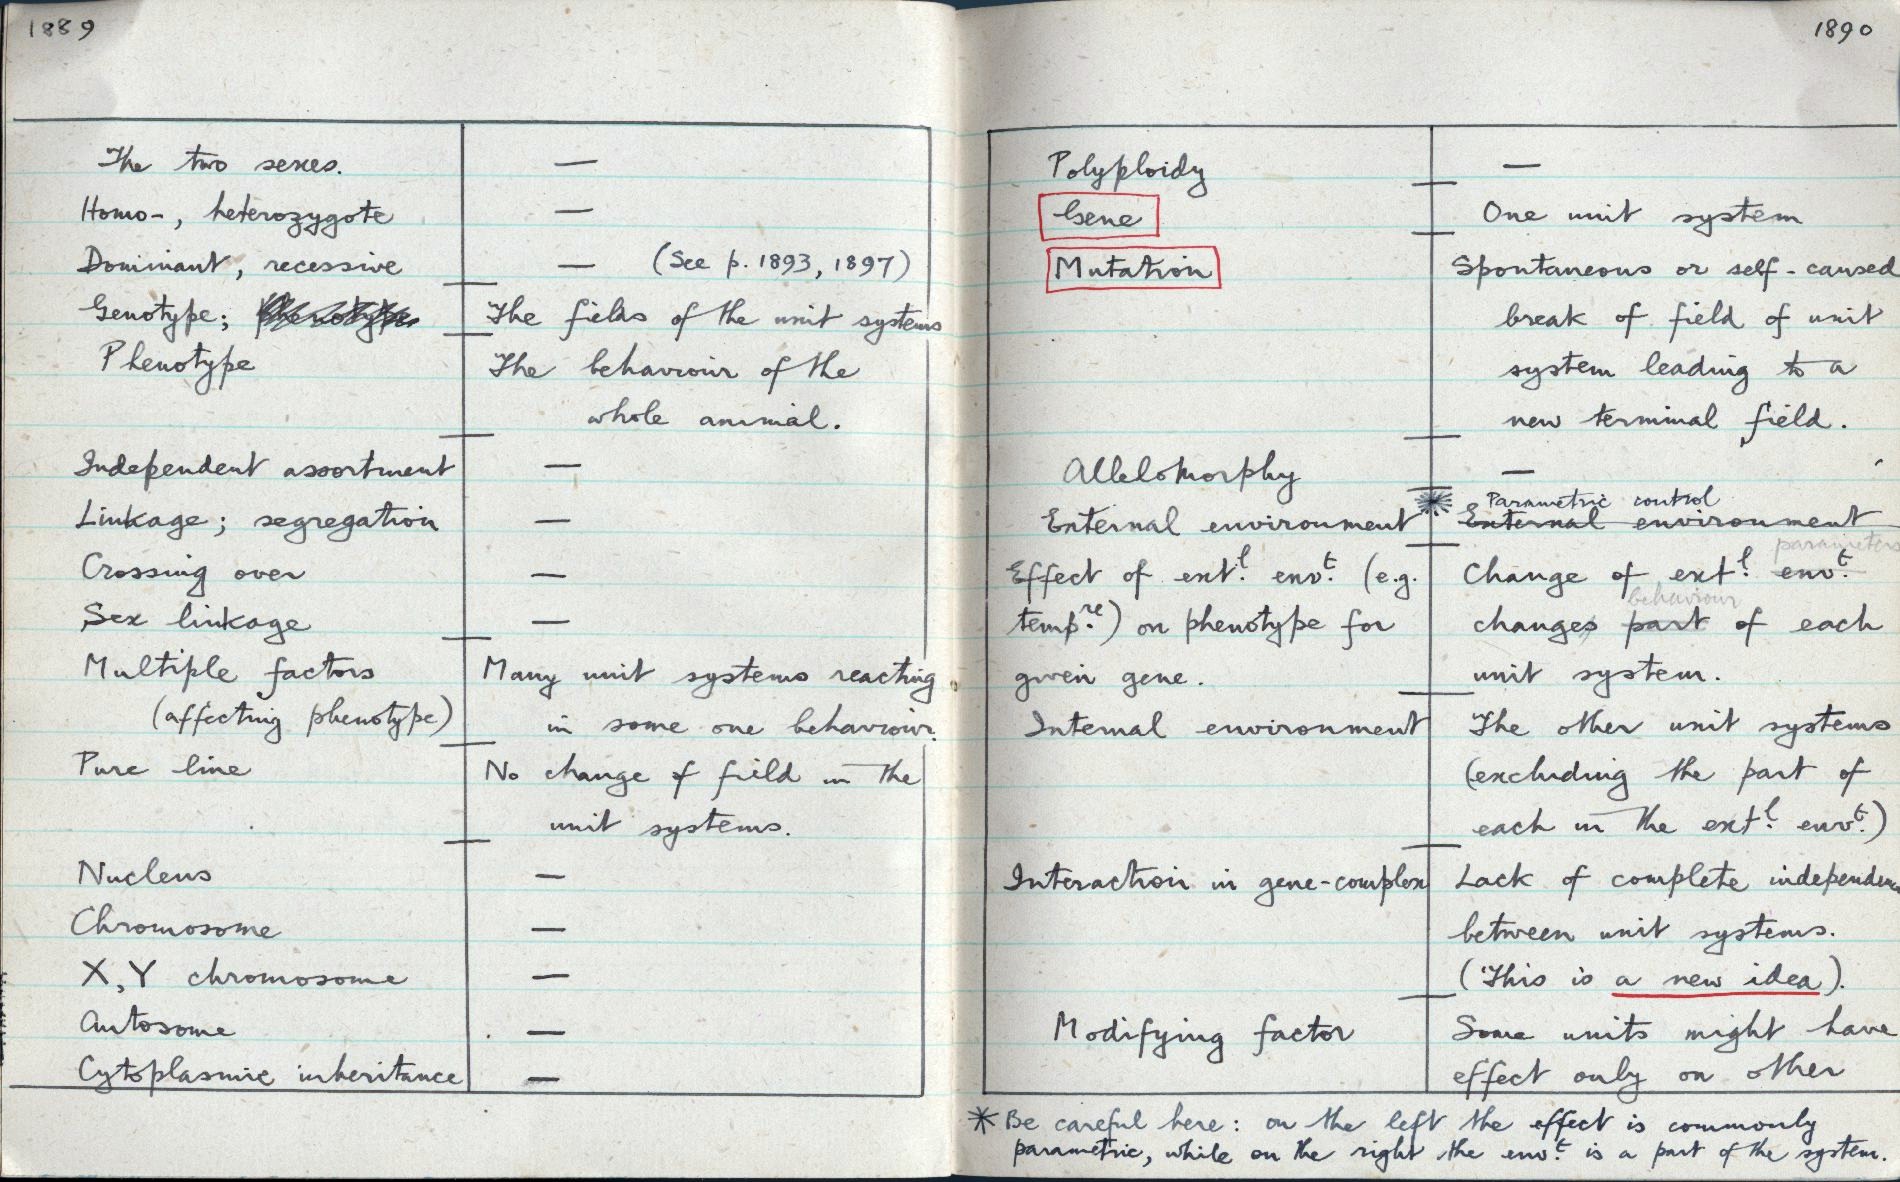 1889
The two sexes. —
Homo-, heterozygote —
Dominant, recessive — (See p. 1893, 1897)
Genotype; phenotype The fields of the unit systems
Phenotype The behaviour of the
whole animal.
Independent assortment —
Linkage; segregation —
Crossing over —
Sex linkage —
Multiple factors Many unit systems reacting
(affecting phenotype) in some one behaviour.
Pure line No change of field in the
unit systems.
Nucleus —
Chromosome —
X, Y chromosome —
Autosome —
Cytoplasmic inheritance —
1890
Polyploidy —
Gene One unit system
Mutation Spontaneous or self-caused
break of field of unit
system leading to a
new terminal field.
Allelomorphy —
Parametric control
External environment * External environment
parameters
Effect of extl. envt. (e.g. Change of extl. envt.
behaviour
tempre.) on phenotype for changes part of each
given gene. unit system.
Internal environment The other unit systems
(excluding the part of
each in the extl. envt.)
Interaction in gene-complex Lack of complete independence
between unit systems.
(This is a new idea).
Modifying factor Some units might have
effect only on other
* Be careful here: on the left the effect is commonly
parametric, while on the right the envt. is a part of the system.